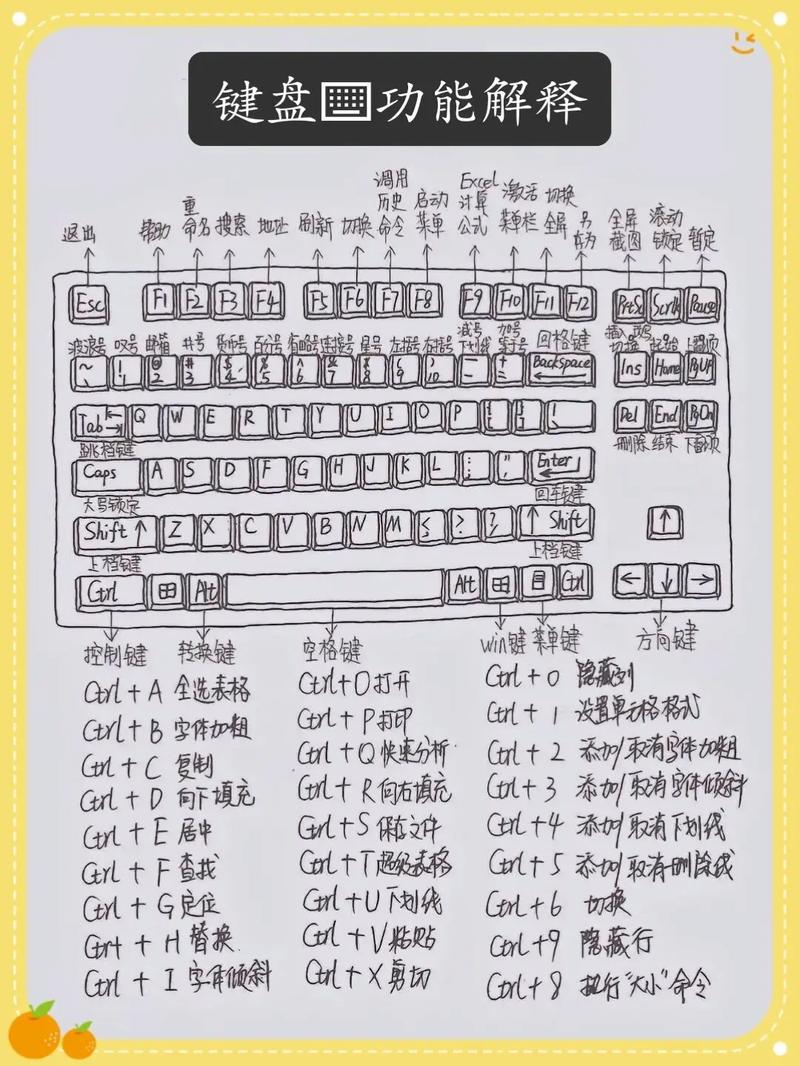 键盘⌨功能解释
退出 帮助 重命名 搜索 地址 刷新 切换 调用历史命令 启动菜单 Excel计算公式 激活菜单栏 切换全屏 另存为 全屏截图 滚动锁定 暂定
Esc F1 F2 F3 F4 F5 F6 F7 F8 F9 F10 F11 F12 PrtSc Scrlk Pause
波浪号 叹号 邮箱 井号 货币号 百分号 省略号 连接号 星号 左括号 右括号 减号下划线 加号等于号 回格键 切换 起始 上翻页
~ ` ! 1 @ 2 # 3 $ 4 % 5 ^ 6 & 7 * 8 ( 9 ) 10 - + = BackSpace Ins Home PgUP
Tab Q W E R T Y U I O P Del End PgDn
跳档键 删除 结束 下翻页
Caps A S D F G H J K L Enter
大写锁定 回车键
Shift ↑ Z X C V B N M ↑ Shift ↑
上档键 上档键
Ctrl Alt Alt Ctrl ← ↓ →
控制键 转换键 空格键 win键 菜单键 方向键
Ctrl + A 全选表格
Ctrl + B 字体加粗
Ctrl + C 复制
Ctrl + D 向下填充
Ctrl + E 居中
Ctrl + F 查找
Ctrl + G 定位
Ctrt + H 替换
Ctrl + I 字体倾斜
Ctrl + O 打开
Ctrl + P 打印
Ctrl + Q 快速分析
Ctrl + R 向右填充
Ctrl + S 保存文件
Ctrl + T 超级表格
Ctrl + U 下划线
Ctrl + V 粘贴
Ctrl + X 剪切
Ctrl + 0 隐藏列
Ctrl + 1 设置单元格格式
Ctrl + 2 添加/取消字体加粗
Ctrl + 3 添加/取消字体倾斜
Ctrl + 4 添加/取消下划线
Ctrl + 5 添加/取消删除线
Ctrl + 6 切换
Ctrl + 9 隐藏行
Ctrl + 8 执行"大小"命令